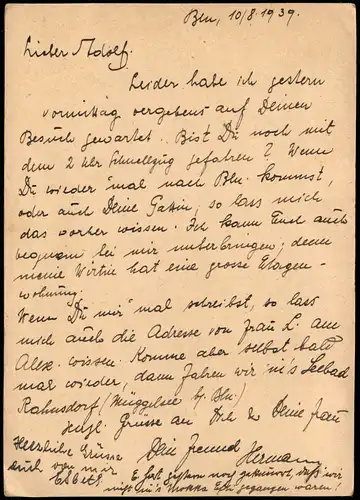 Bln, 10/8. 1939.
Lieber Adolf.
Leider habe ich gestern
vormittag vergebens auf Deinen
Besuch gewartet. Bist Du noch mit
dem 2 Uhr Schnellzug gefahren? Wenn
Du wieder mal nach Bln. kommst,
oder auch Deine Gattin, so lass mich
das vorher wissen. Ich kann Euch auch
bequem bei mir unterbringen; denn
meine Wirtin hat eine grosse Etagen-
wohnung.
Wenn Du mir mal schreibst, so lass
mich auch die Adresse von Frau L. am
Alex. wissen. Komme aber selbst bald
mal wieder, dann fahren wir in's Seebad
Rahnsdorf (Müggelsee b/ Bln.)
Herzl. Grüsse an Dich & Deine Frau
Dein Freund Hermann
Herzliche Grüsse
auch von mir
E. hat gestern noch, daß wir
nicht in's Mokka Efti gegangen waren!